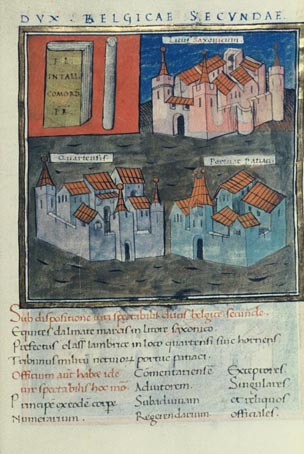 DVX · BELGICAE SECVNDAE
Litus Saxonicum
FL
INTALL
COMORD
PR
Quartensis
Portuae Patiaci
Sub dispositione viri spectabilis ducis belgice secunde.
Equites dalmate marcis in litore saxonico
Prefectus classis sambrice in loco quartensi sive hornensi
Tribunus militum nerviorum portue patiaci.
Officium aut habe ide
vir spectabilis hoc mo
Principe ex eode corpe
Numerarium.
Comentariense
Adiutorem.
Subadiuvam
Regerendarium
Exceptores
Singulares
et reliquos
officiales.